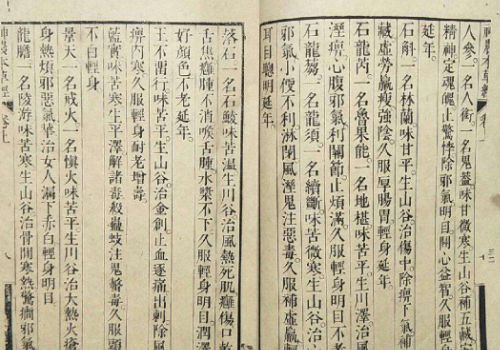 人參。一名人銜一名鬼蓋味甘微寒生山谷補五藏
精神定魂魄止驚悸除邪氣明目開心益智。久服輕
延年。
石斛。一名林蘭味甘平。生山谷治傷中。除痹下氣補
藏虛勞羸瘦強陰。久服厚腸胃輕身延年。
石龍芮。一名魯果能。一名地椹味苦平。生川澤治風
溼痹心腹邪氣利關節止煩滿。久服輕身明目不老
石龍蒭。一名龍須。一名續斷味苦微寒生山谷。治
邪氣小便不利淋閉風溼鬼注惡毒。久服補虛羸輕
耳目聰明延年。
落石。一名石鯪味苦溫生川谷治風熱死肌癰傷口乾
舌焦癰腫不消喉舌腫水漿不下久服輕身明目潤澤
好顏色不老延年。
王不留行味苦平生山谷治金創止血逐痛出刺除風
痹內寒久服輕身耐老增壽。
藍實味苦寒生平澤解諸毒殺蠱蚑注鬼螫毒久服頭
不白輕身
景天一名戒火一名慎火味苦平生川谷治大熱火瘡
身熱煩邪惡氣華治女人漏下赤白輕身明目
龍膽一名陵游味苦寒生山谷治骨間寒熱驚癇邪氣
神農本草經